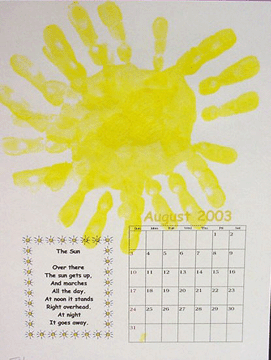 August 2003
Sun Mon Tue Wed Thu Fri Sat
1 2
3 4 5 6 7 8 9
10 11 12 13 14 15 16
17 18 19 20 21 22 23
24 25 26 27 28 29 30
31
The Sun
Over there
The sun gets up,
And marches
All the day.
At noon it stands
Right overhead.
At night
It goes away.